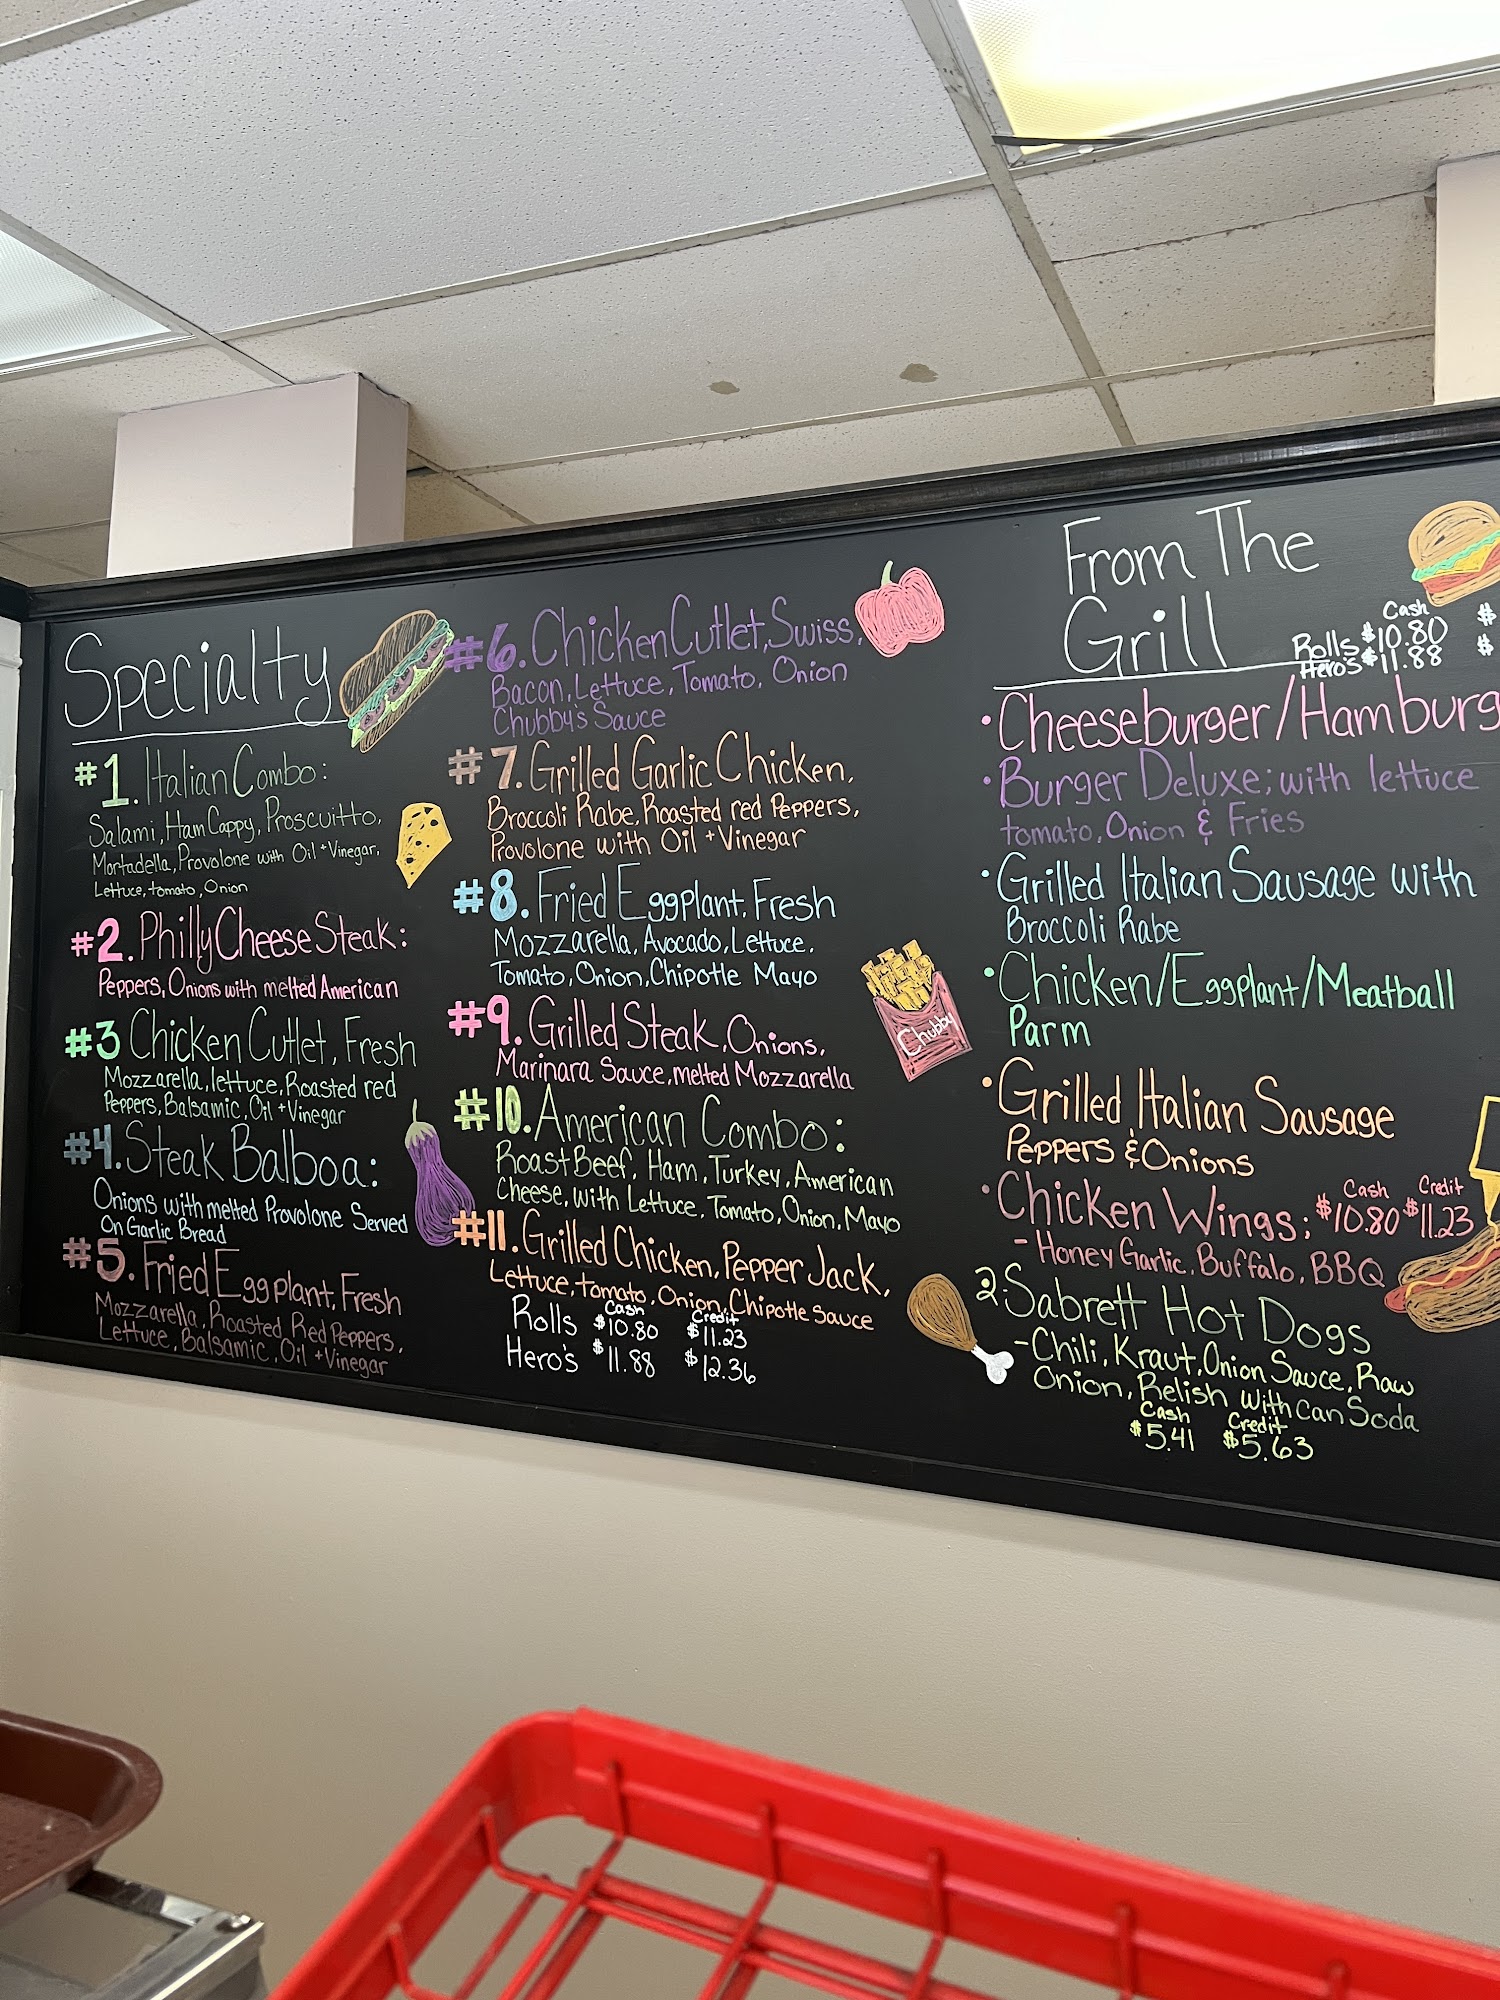 Specialty
#1. Italian Combo:
Salami, Ham Cappy, Proscuitto,
Mortadella, Provolone with Oil + Vinegar,
Lettuce, tomato, Onion
#2. Philly Cheese Steak:
Peppers, Onions with melted American
#3 Chicken Cutlet, Fresh
Mozzarella, lettuce, Roasted red
Peppers, Balsamic, Oil + Vinegar
#4. Steak Balboa:
Onions with melted Provolone Served
On Garlic Bread
#5. Fried Eggplant, Fresh
Mozzarella, Roasted Red Peppers,
Lettuce, Balsamic, Oil + Vinegar
#6. Chicken Cutlet, Swiss,
Bacon, Lettuce, Tomato, Onion
Chubby's Sauce
#7. Grilled Garlic Chicken,
Broccoli Rabe, Roasted red Peppers,
Provolone with Oil + Vinegar
#8. Fried Eggplant, Fresh
Mozzarella, Avocado, Lettuce,
Tomato, Onion, Chipotle Mayo
#9. Grilled Steak, Onions,
Marinara Sauce, melted Mozzarella
#10. American Combo:
Roast Beef, Ham, Turkey, American
Cheese, with Lettuce, Tomato, Onion, Mayo
#11. Grilled Chicken, Pepper Jack,
Lettuce, tomato, Onion, Chipotle sauce
Cash Credit
Rolls $10.80 $11.23
Hero's $11.88 $12.36
Chubby
From The
Grill
Cash
Rolls $10.80 $
Hero's $11.88 $
• Cheeseburger/Hamburg
• Burger Deluxe; with lettuce
tomato, Onion & Fries
• Grilled Italian Sausage with
Broccoli Rabe
• Chicken/Eggplant/Meatball
Parm
• Grilled Italian Sausage
Peppers & Onions
Cash Credit
• Chicken Wings; $10.80 $11.23
- Honey Garlic, Buffalo, BBQ
• 2 Sabrett Hot Dogs
- Chili, Kraut, Onion Sauce, Raw
Onion, Relish with can Soda
Cash Credit
$5.41 $5.63